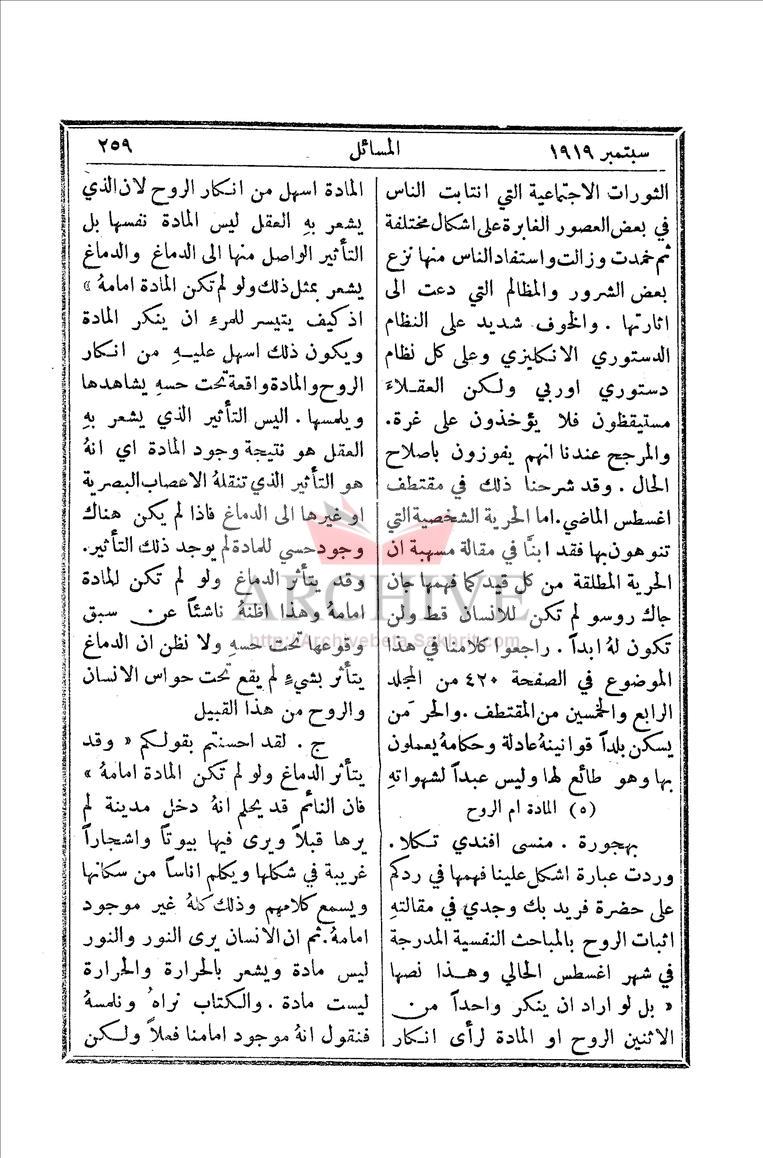 سبتمبر ١٩١٩ المسائل ٢٥٩
الثورات الاجتماعية التي انتابت الناس
في بعض العصور الغابرة على اشكال مختلفة
ثم خمدت وزالت واستفاد الناس منها نزع
بعض الشرور والمظالم التي دعت الى
اثارتها . والخوف شديد على النظام
الدستوري الانكليزي وعلى كل نظام
دستوري اوربي ولكن العقلاءَ
مستيقظون فلا يؤخذون على غرة.
والمرجح عندنا انهم يفوزون باصلاح
الحال . وقد شرحنا ذلك في مقتطف
اغسطس الماضي. اما الحرية الشخصية التي
تنوهون بها فقد ابنَّا في مقالة مسهبة ان
الحرية المطلقة من كل قيد كما فهمها جان
جاك روسو لم تكن للانسان قط ولن
تكون لهُ ابداً . راجعوا كلامنا في هذا
الموضوع في الصفحة ٤٢٠ من المجلد
الرابع والخمسين من المقتطف . والحر من
يسكن بلداً قوانينهُ عادلة وحكامهُ يعملون
بها وهو طائع لها وليس عبداً لشهواتهِ
(٥) المادة ام الروح
بهجورة . منسى افندي تكلا.
وردت عبارة اشكل علينا فهمها في ردكم
على حضرة فريد بك وجدي في مقالتهِ
اثبات الروح بالمباحث النفسية المدرجة
في شهر اغسطس الحالي وهذا نصها
« بل لو اراد ان ينكر واحداً من
الاثنين الروح او المادة لرأى انكار
المادة اسهل من انكار الروح لان الذي
يشعر بهِ العقل ليس المادة نفسها بل
التأثير الواصل منها الى الدماغ والدماغ
يشعر بمثل ذلك ولو لم تكن المادة امامهُ »
اذ كيف يتيسر للمرءِ ان ينكر المادة
ويكون ذلك اسهل عليهِ من انكار
الروح والمادة واقعة تحت حسهِ يشاهدها
ويلمسها . اليس التأثير الذي يشعر بهِ
العقل هو نتيجة وجود المادة اي انهُ
هو التأثير الذي تنقلهُ الاعصاب البصرية
او غيرها الى الدماغ فاذا لم يكن هناك
وجود حسي للمادة لم يوجد ذلك التأثير.
وقد يتأثر الدماغ ولو لم تكن المادة
امامهُ وهذا اظنهُ ناشئاً عن سبق
وقوعها تحت حسهِ ولا نظن ان الدماغ
يتأثر بشيءٍ لم يقع تحت حواس الانسان
والروح من هذا القبيل
ج . لقد احسنتم بقولكم « وقد
يتأثر الدماغ ولو لم تكن المادة امامهُ »
فان النائم قد يحلم انهُ دخل مدينة لم
يرها قبلاً ويرى فيها بيوتاً واشجاراً
غريبة في شكلها ويكلم اناساً من سكانها
ويسمع كلامهم وذلك كلهُ غير موجود
امامهُ. ثم ان الانسان يرى النور والنور
ليس مادة ويشعر بالحرارة والحرارة
ليست مادة . والكتاب نراهُ ونلمسهُ
فنقول انهُ موجود امامنا فعلاً ولكن
ARCHIVE
http://Archivebeta.Sakhrit.com